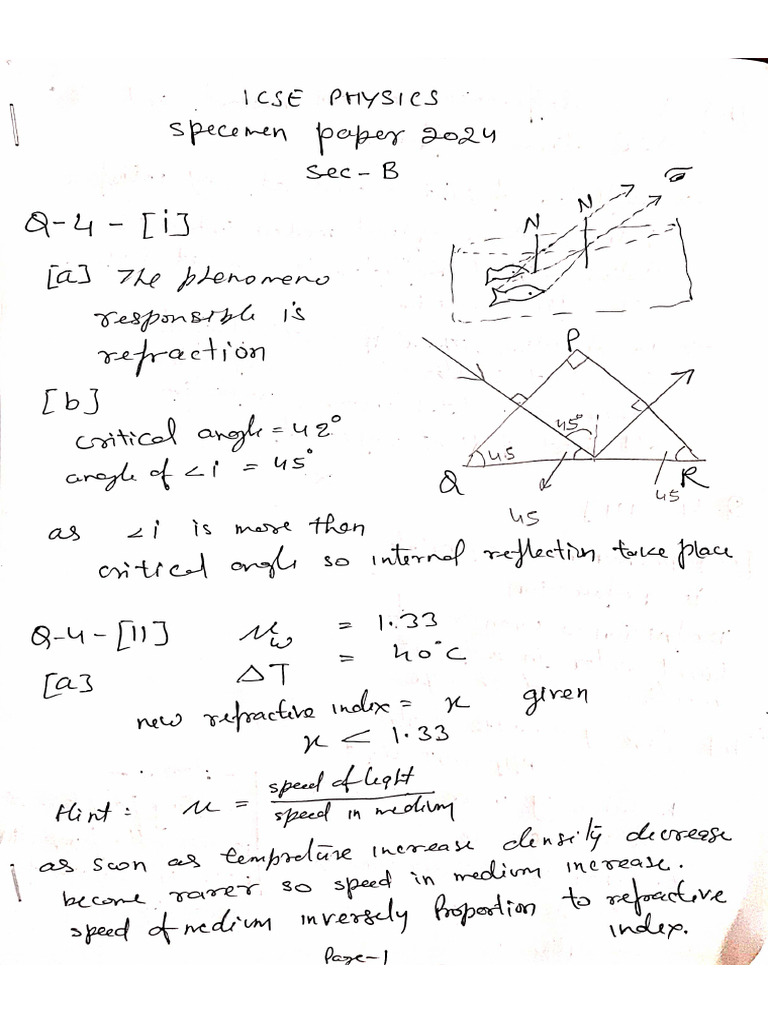 ICSE PHYSICS
specemen paper 2024
sec-B
Q-4-[i]
[a] The phenomeno
responsible is
refraction
N N
[b]
critical angle = 42°
angle of ∠i = 45°
P
45°
45
Q
45
45
R
as ∠i is more then
critical angle so internal reflection take place
Q-4-[II] μw = 1.33
[a] ΔT = 40°C
new refractive index = x given
x < 1.33
Hint: μ = speed of light
speed in medium
as soon as temprature increase density decrease
become rarer so speed in medium increase.
speed of medium inversely proportion to refractive
index.
Page-1